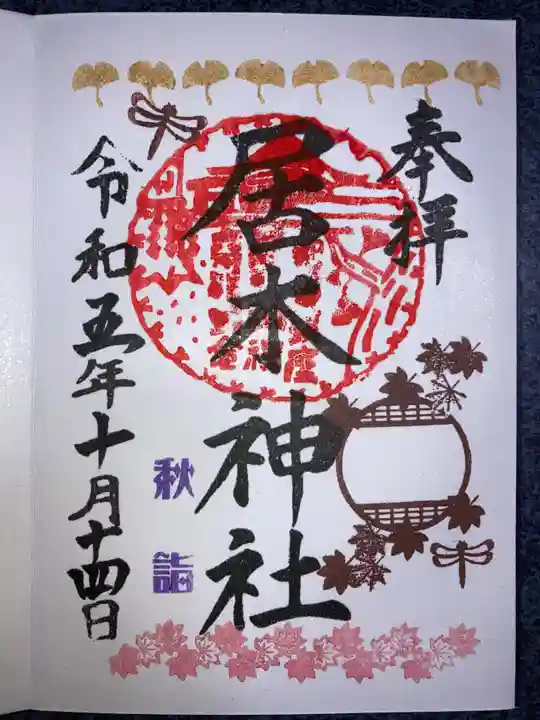 奉拝
居木神社
秋詣
令和五年十月十四日